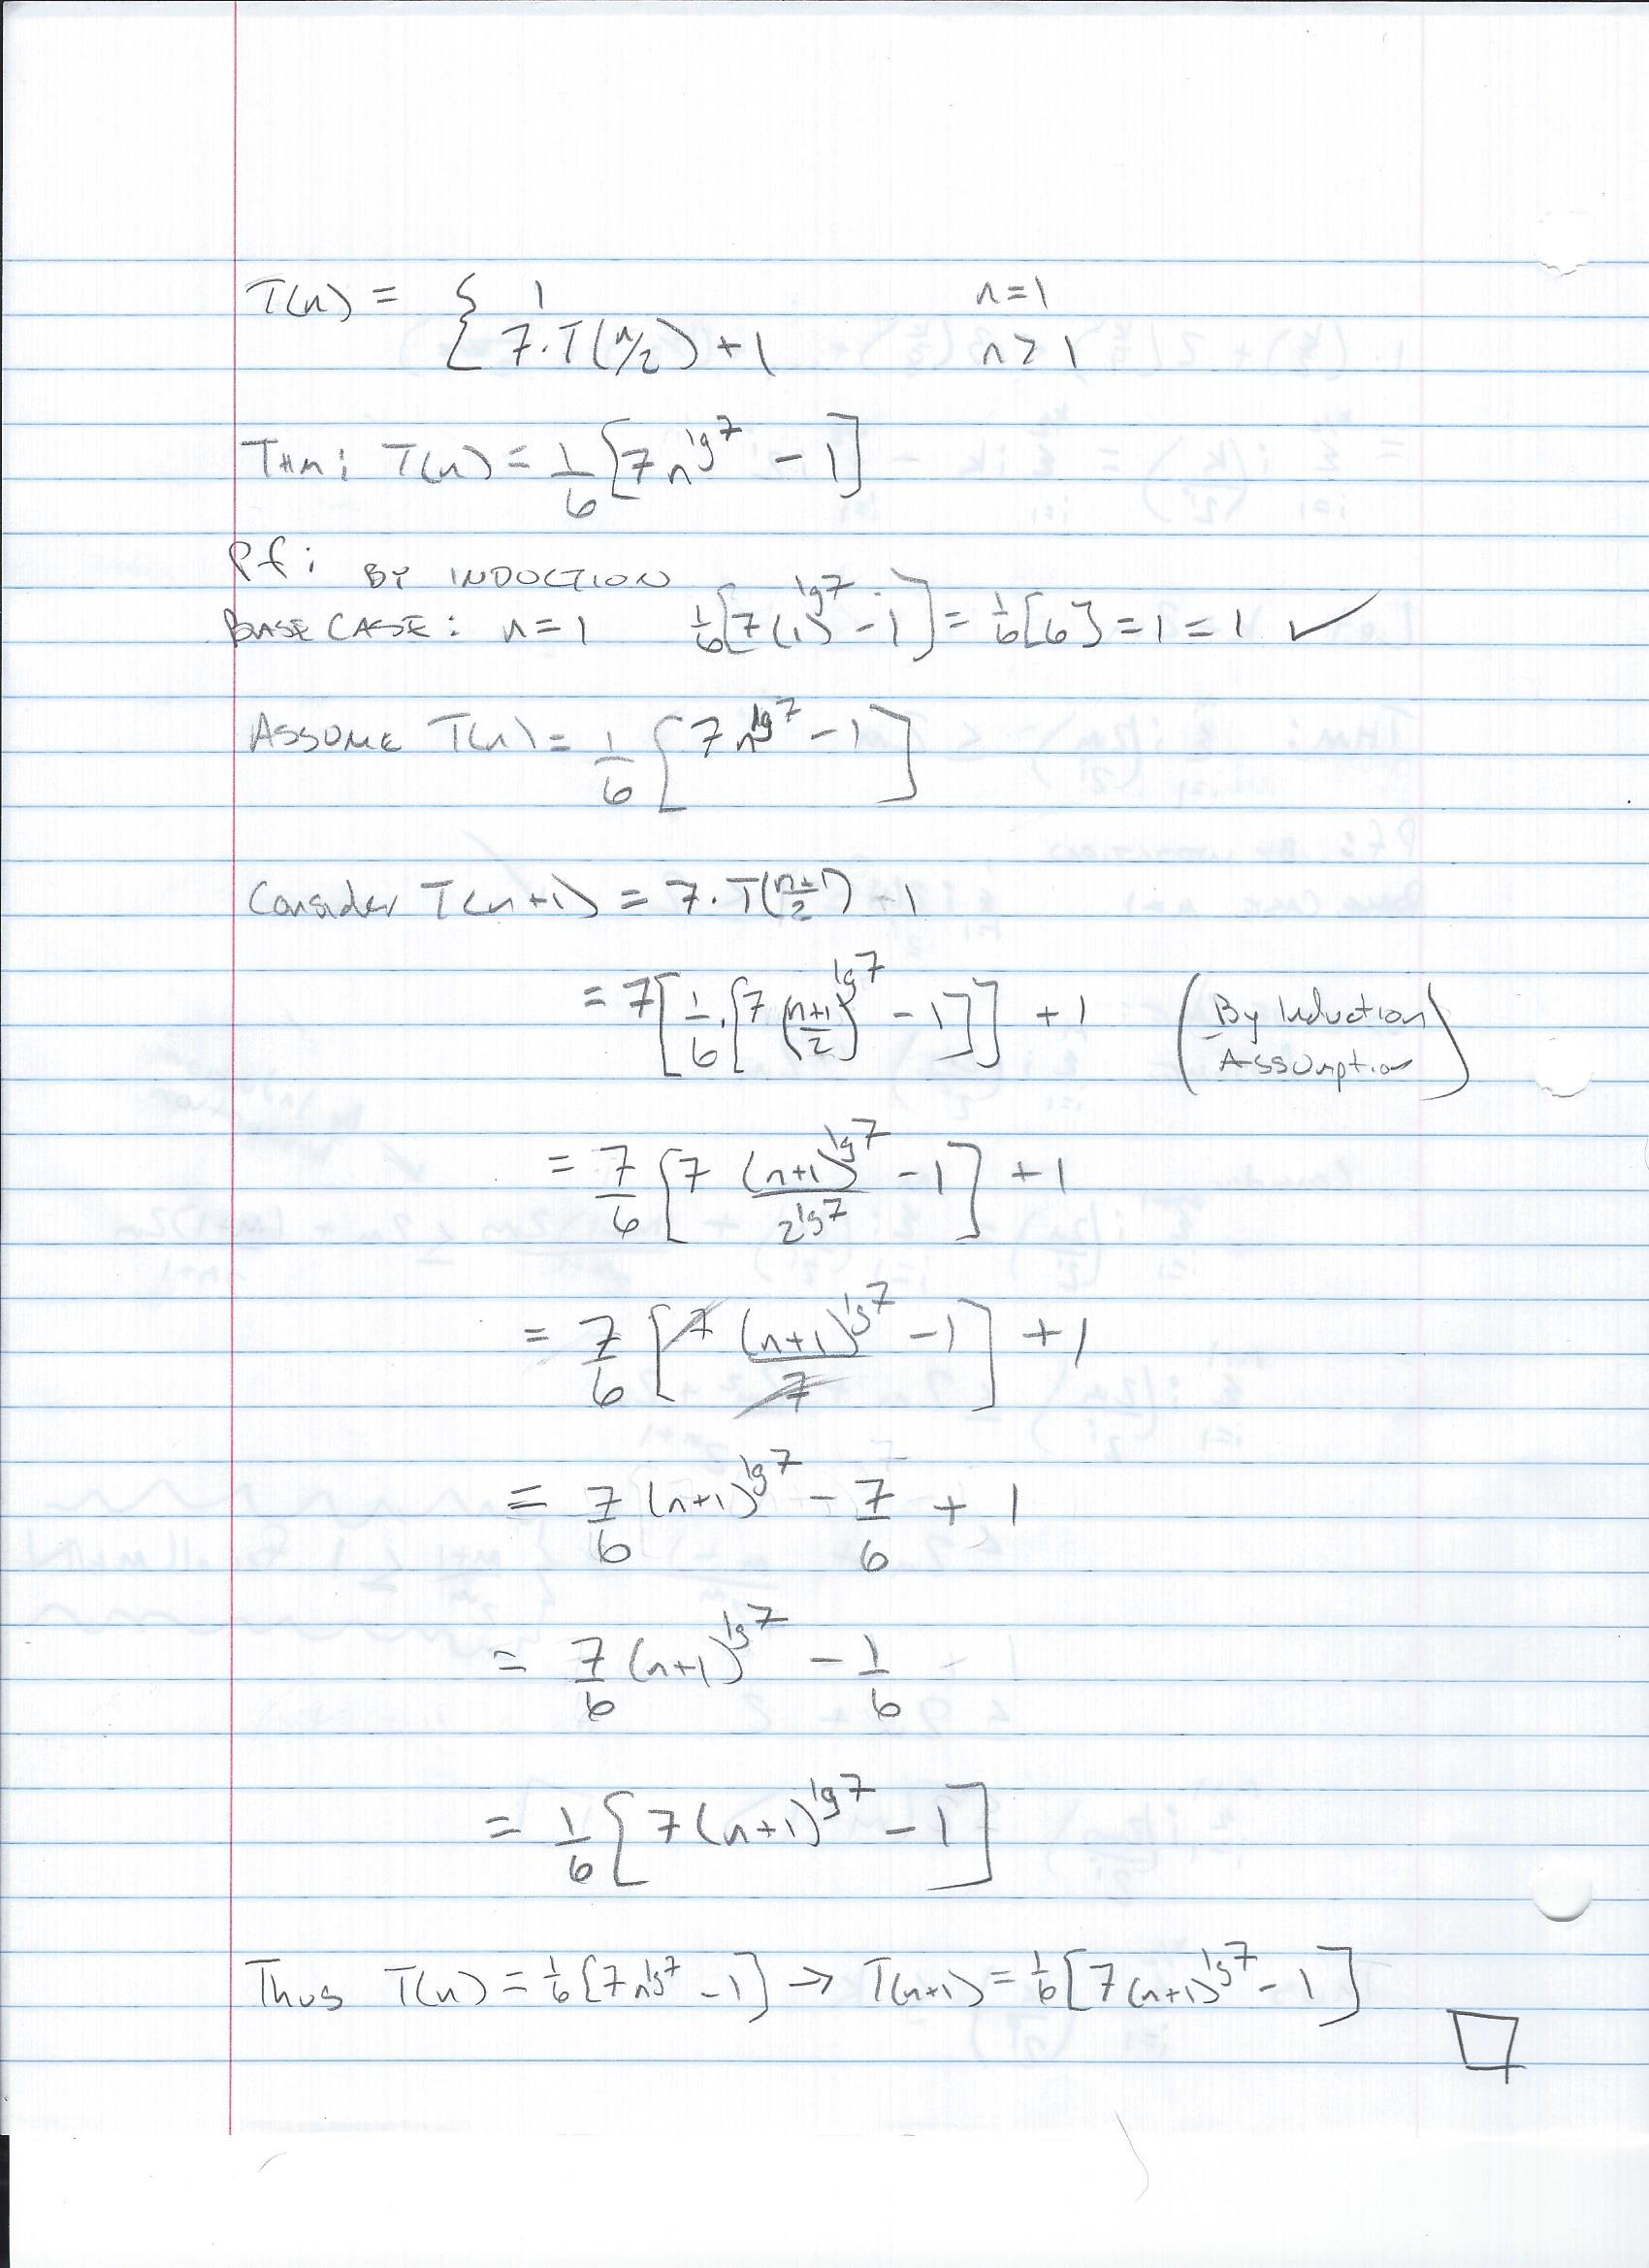 T(n) = { 1 n=1
7·T(n/2) + 1 n>1
THM: T(n) = 1/6 [7n^lg7 - 1]
Pf: BY INDUCTION
BASE CASE: n=1 1/6[7(1)^lg7 - 1] = 1/6[6] = 1 = 1 ✓
ASSUME T(n) = 1/6 [7n^lg7 - 1]
Consider T(n+1) = 7·T((n+1)/2) + 1
= 7[1/6·[7((n+1)/2)^lg7 - 1]] + 1 (By Induction
Assumption)
= 7/6 [7 (n+1)^lg7/2^lg7 - 1] + 1
= 7/6 [7 (n+1)^lg7/7 - 1] + 1
= 7/6 (n+1)^lg7 - 7/6 + 1
= 7/6 (n+1)^lg7 - 1/6
= 1/6 [7(n+1)^lg7 - 1]
Thus T(n) = 1/6[7n^lg7 - 1] → T(n+1) = 1/6[7(n+1)^lg7 - 1]
□